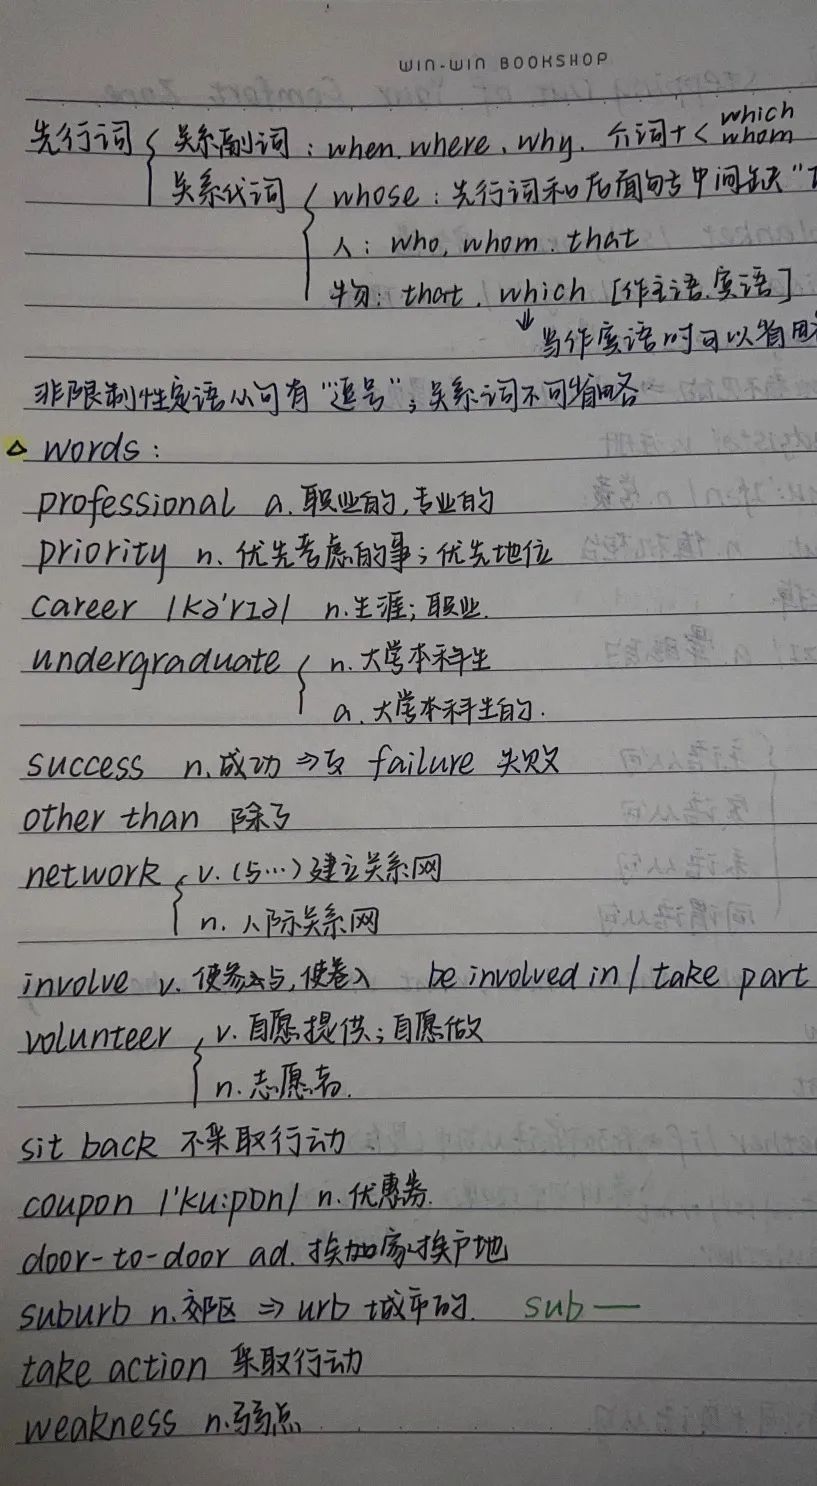 WIN-WIN BOOKSHOP
先行词 { 关系副词：when. where、why. 介词+< which whom
关系代词 { whose：先行词和后面句子中间缺“
人：who, whom. that
物：that. which [作主语.宾语]
↓当作宾语时可以省略
非限制性定语从句有“逗号”；关系词不可省略
△ words：
professional a. 职业的,专业的
priority n. 优先考虑的事；优先地位
career /kə'rɪə/ n.生涯；职业.
undergraduate { n. 大学本科生
a. 大学本科生的.
success n.成功 ⇒反 failure 失败
other than 除了
network { v. (与…)建立关系网
n. 人际关系网
involve v. 使参与,使卷入 be involved in / take part
volunteer { v. 自愿提供；自愿做
n. 志愿者.
sit back 不采取行动.
coupon /'ku:pɒn/ n. 优惠券.
door-to-door ad. 挨家挨户地
suburb n.郊区 ⇒ urb 城市的. sub—
take action 采取行动
weakness n.弱点